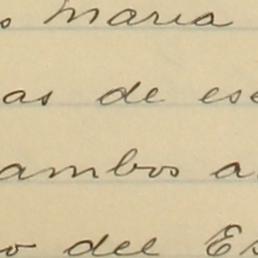 s Maria
as de es
ambos a
o del Es